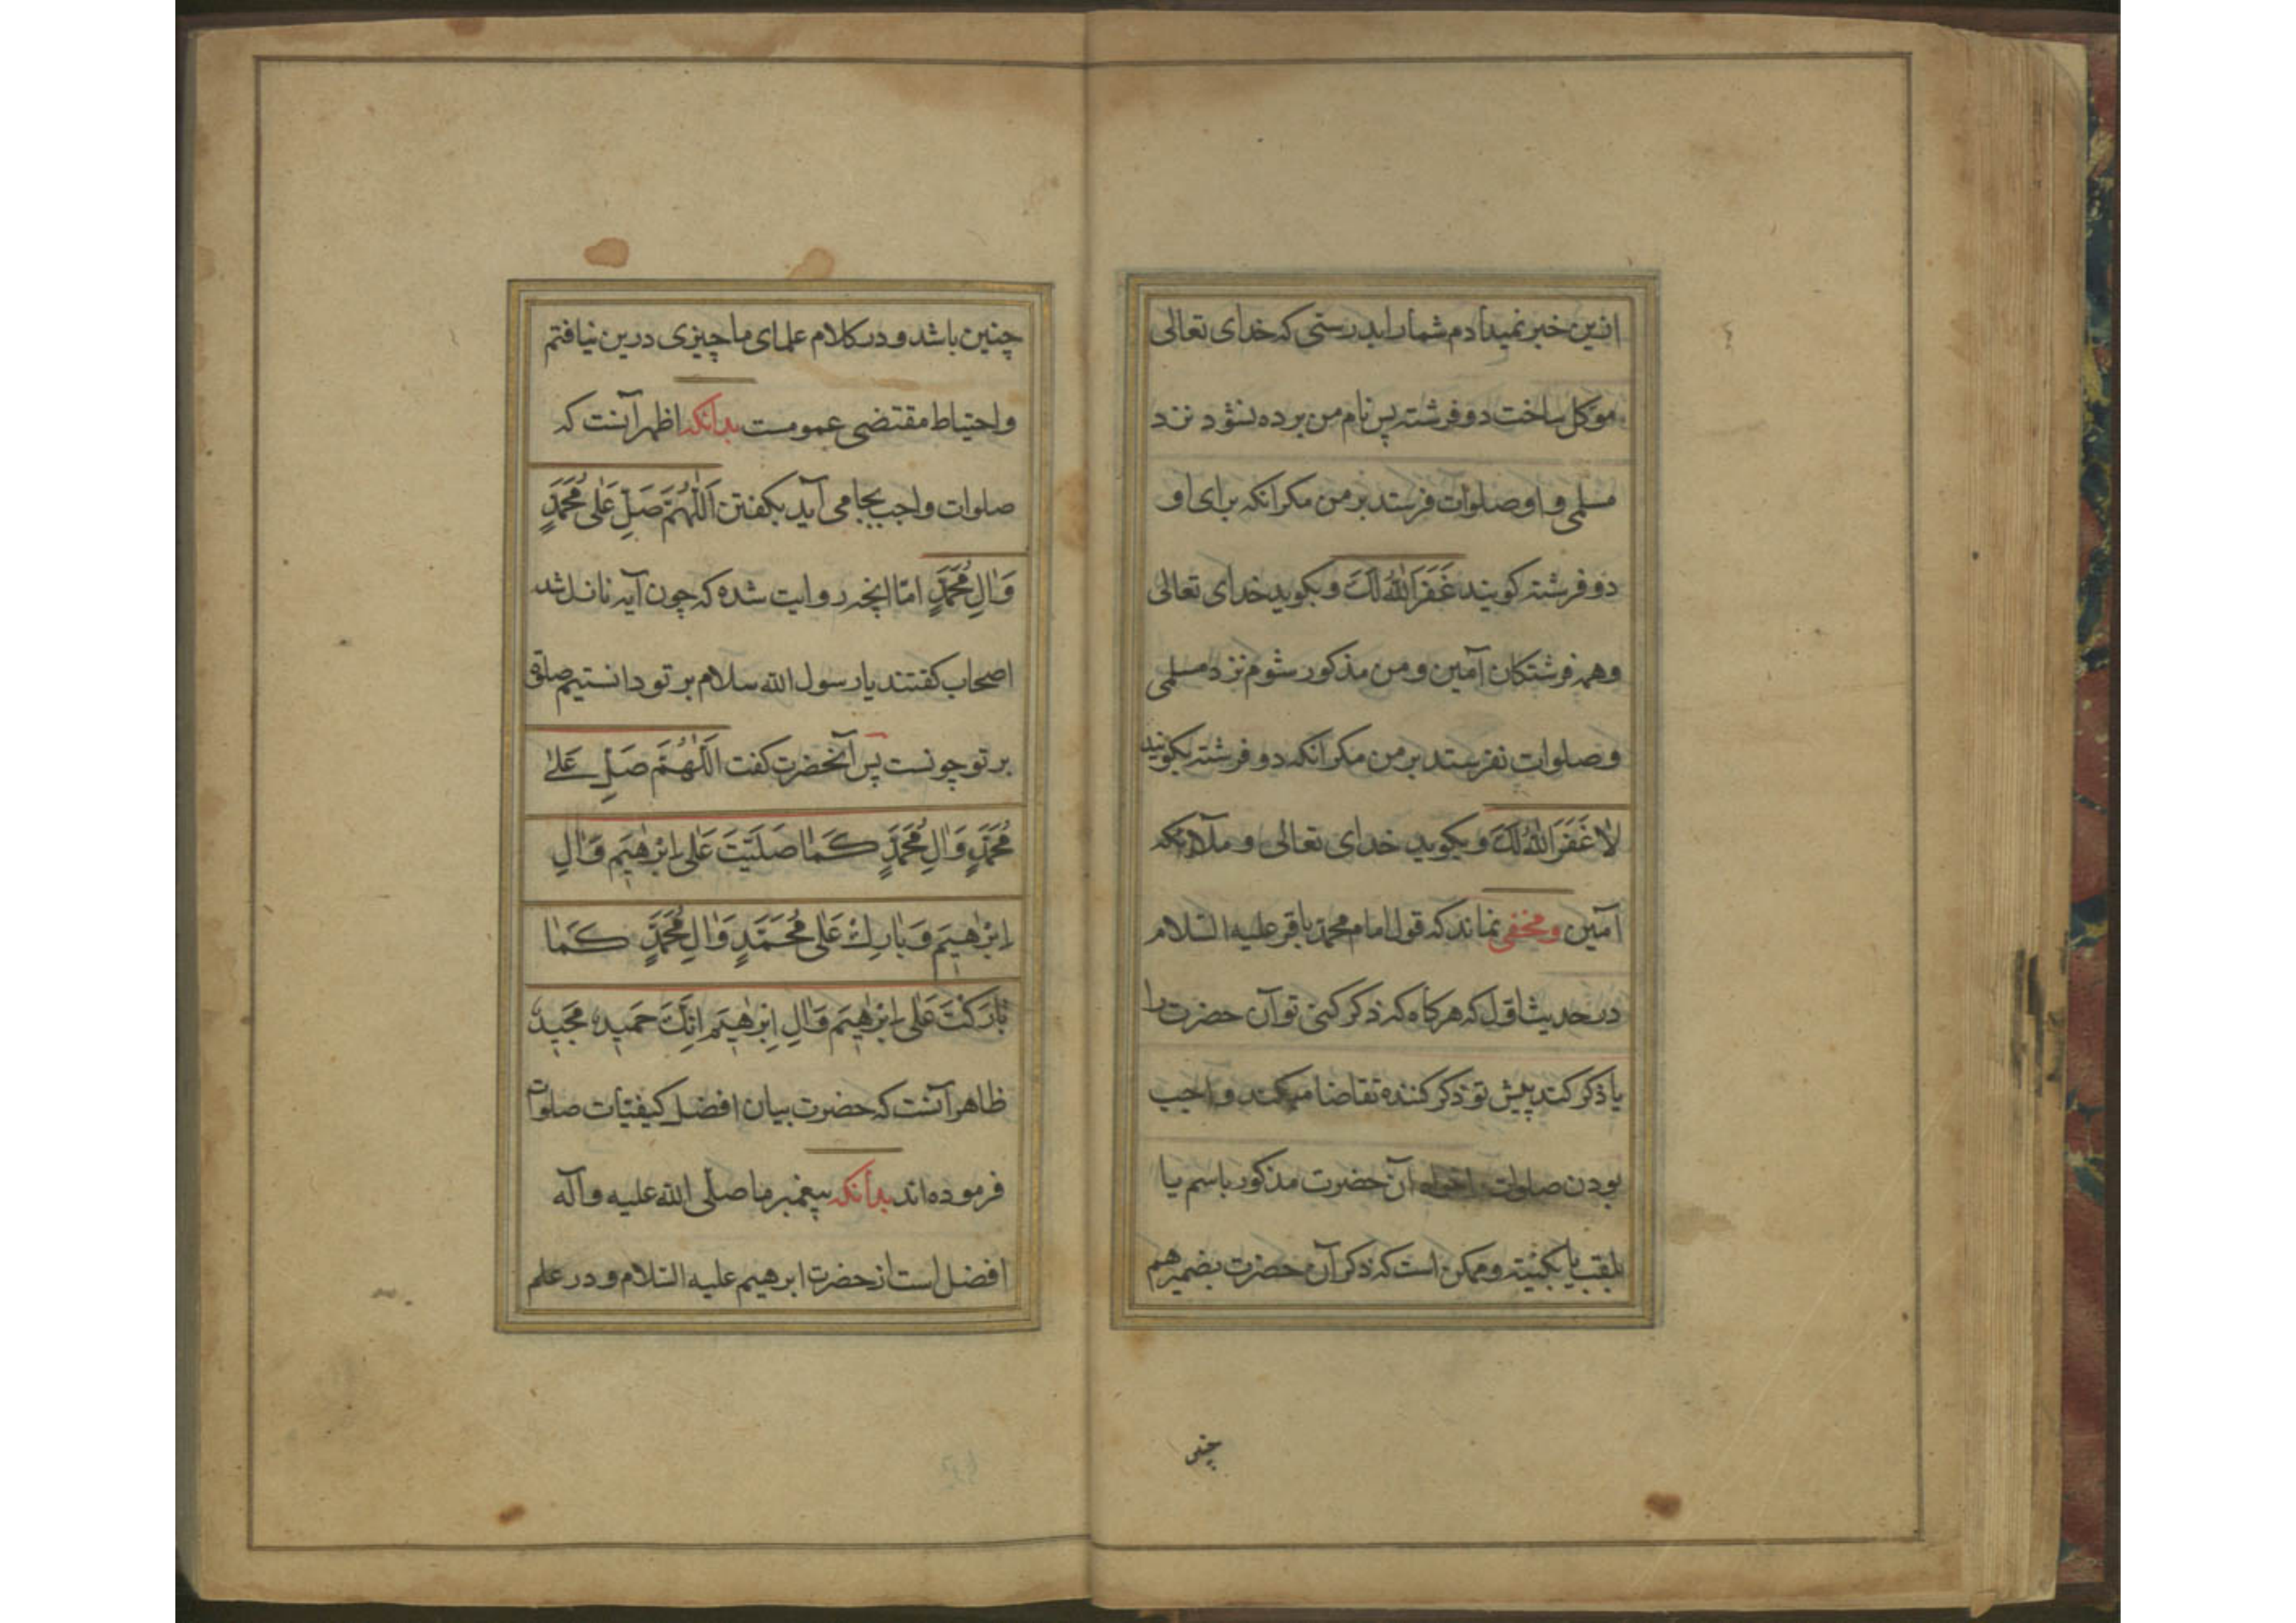 ازین خبر نمیدادم شما را بدرستی که خدای تعالی
موکل ساخت دو فرشته پس نام من برده نشود نزد
مسلمی و او صلوات فرستد بر من مکر انکه برای او
دو فرشته کویند غَفَرَ اللهُ لَكَ و بکوید خدای تعالی
و همه فرشتکان آمین و من مذکور شوم نزد مسلمی
و صلوات نفرستد بر من مکر انکه دو فرشته بکویند
لَا غَفَرَ اللهُ لَكَ و بکوید خدای تعالی و ملآئکه
آمین ومخفی نماند که قول امام محمد باقر علیه السلام
در حدیث اول که هرکاه که ذکر کنی تو آن حضرت را
یا ذکر کند پیش تو ذکر کننده تقاضا میکند واجب
بودن صلوات خواه آن حضرت مذکور باسم یا
بلقب یا بکنیته و ممکن است که ذکر آن حضرت بضمیر هم
چنین
چنین باشد و در کلام علمای ما چیزی درین نیافتم
و احتیاط مقتضی عمومست بدانکه اظهر آنست که
صلوات واجب بجا می آید بکفتن اَللّٰهُمَّ صَلِّ عَلٰی مُحَمَّدٍ
وَاٰلِ مُحَمَّدٍ امّا انچه روایت شده که چون آیه نازل شد
اصحاب کفتند یا رسول الله سلام بر تو دانستیم صلوة
بر تو چونست پس آنحضرت کفت اَللّٰهُمَّ صَلِّ عَلٰے
مُحَمَّدٍ وَاٰلِ مُحَمَّدٍ كَمٰا صَلَّيْتَ عَلٰى اِبْرٰهٖيمَ وَاٰلِ
اِبْرٰهٖيمَ وَبٰارِكْ عَلٰى مُحَمَّدٍ وَاٰلِ مُحَمَّدٍ كَمٰا
بٰارَكْتَ عَلٰى اِبْرٰهٖيمَ وَاٰلِ اِبْرٰهٖيمَ اِنَّكَ حَمٖيدٌ مَجٖيدٌ
ظاهر آنست که حضرت بیان افضل کیفیّات صلوات
فرموده اند بدانکه پیغمبر ما صلّی الله علیه وآله
افضل است از حضرت ابرهیم علیه السلام و در علم